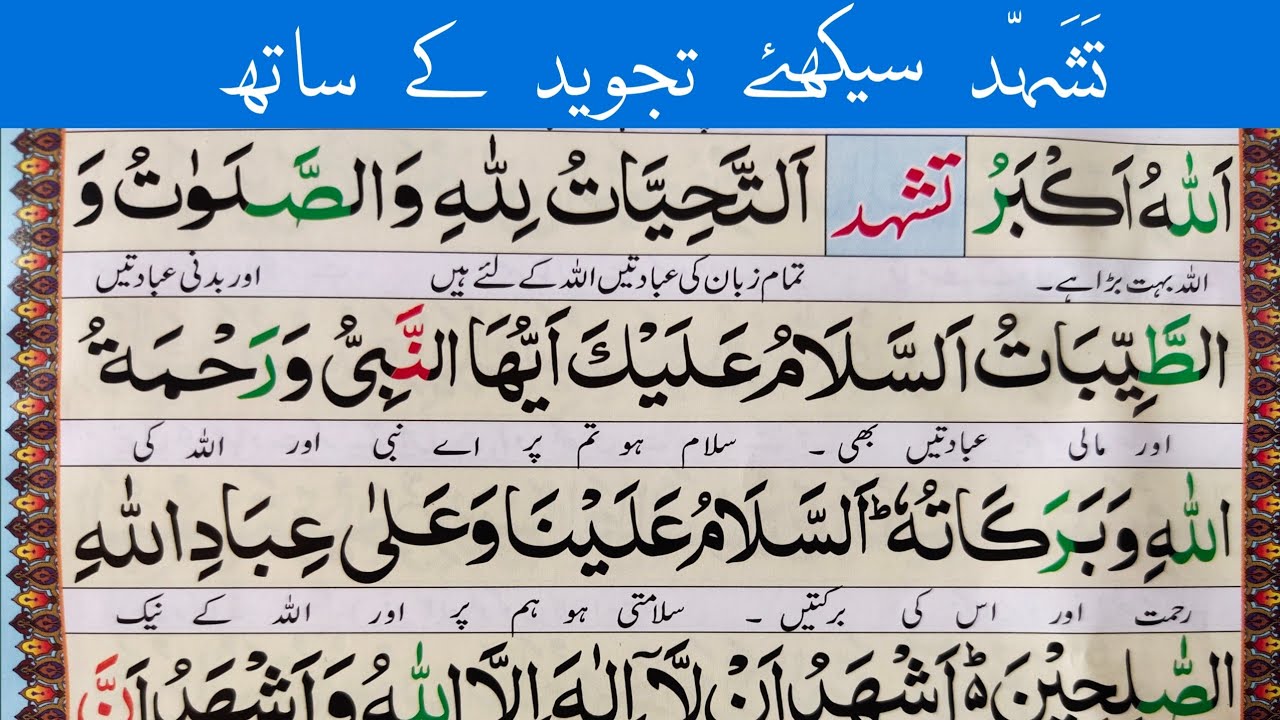 تَشَہّد سیکھئے تجوید کے ساتھ
اَللّٰهُ اَكْبَرُ تشہد اَلتَّحِيَّاتُ لِلّٰهِ وَالصَّلَوٰتُ وَ
اللہ بہت بڑا ہے۔ تمام زبان کی عبادتیں اللہ کے لئے ہیں اور بدنی عبادتیں
الطَّيِّبَاتُ اَلسَّلَامُ عَلَيْكَ اَيُّهَا النَّبِيُّ وَرَحْمَةُ
اور مالی عبادتیں بھی ۔ سلام ہو تم پر اے نبی اور اللہ کی
اللّٰهِ وَبَرَكَاتُهٗ ؕ اَلسَّلَامُ عَلَيْنَا وَعَلٰى عِبَادِ اللّٰهِ
رحمت اور اس کی برکتیں ۔ سلامتی ہو ہم پر اور اللہ کے نیک
الصّٰلِحِيْنَ ؕ اَشْهَدُ اَنْ لَّآ اِلٰهَ اِلَّا اللّٰهُ وَاَشْهَدُ اَنَّ